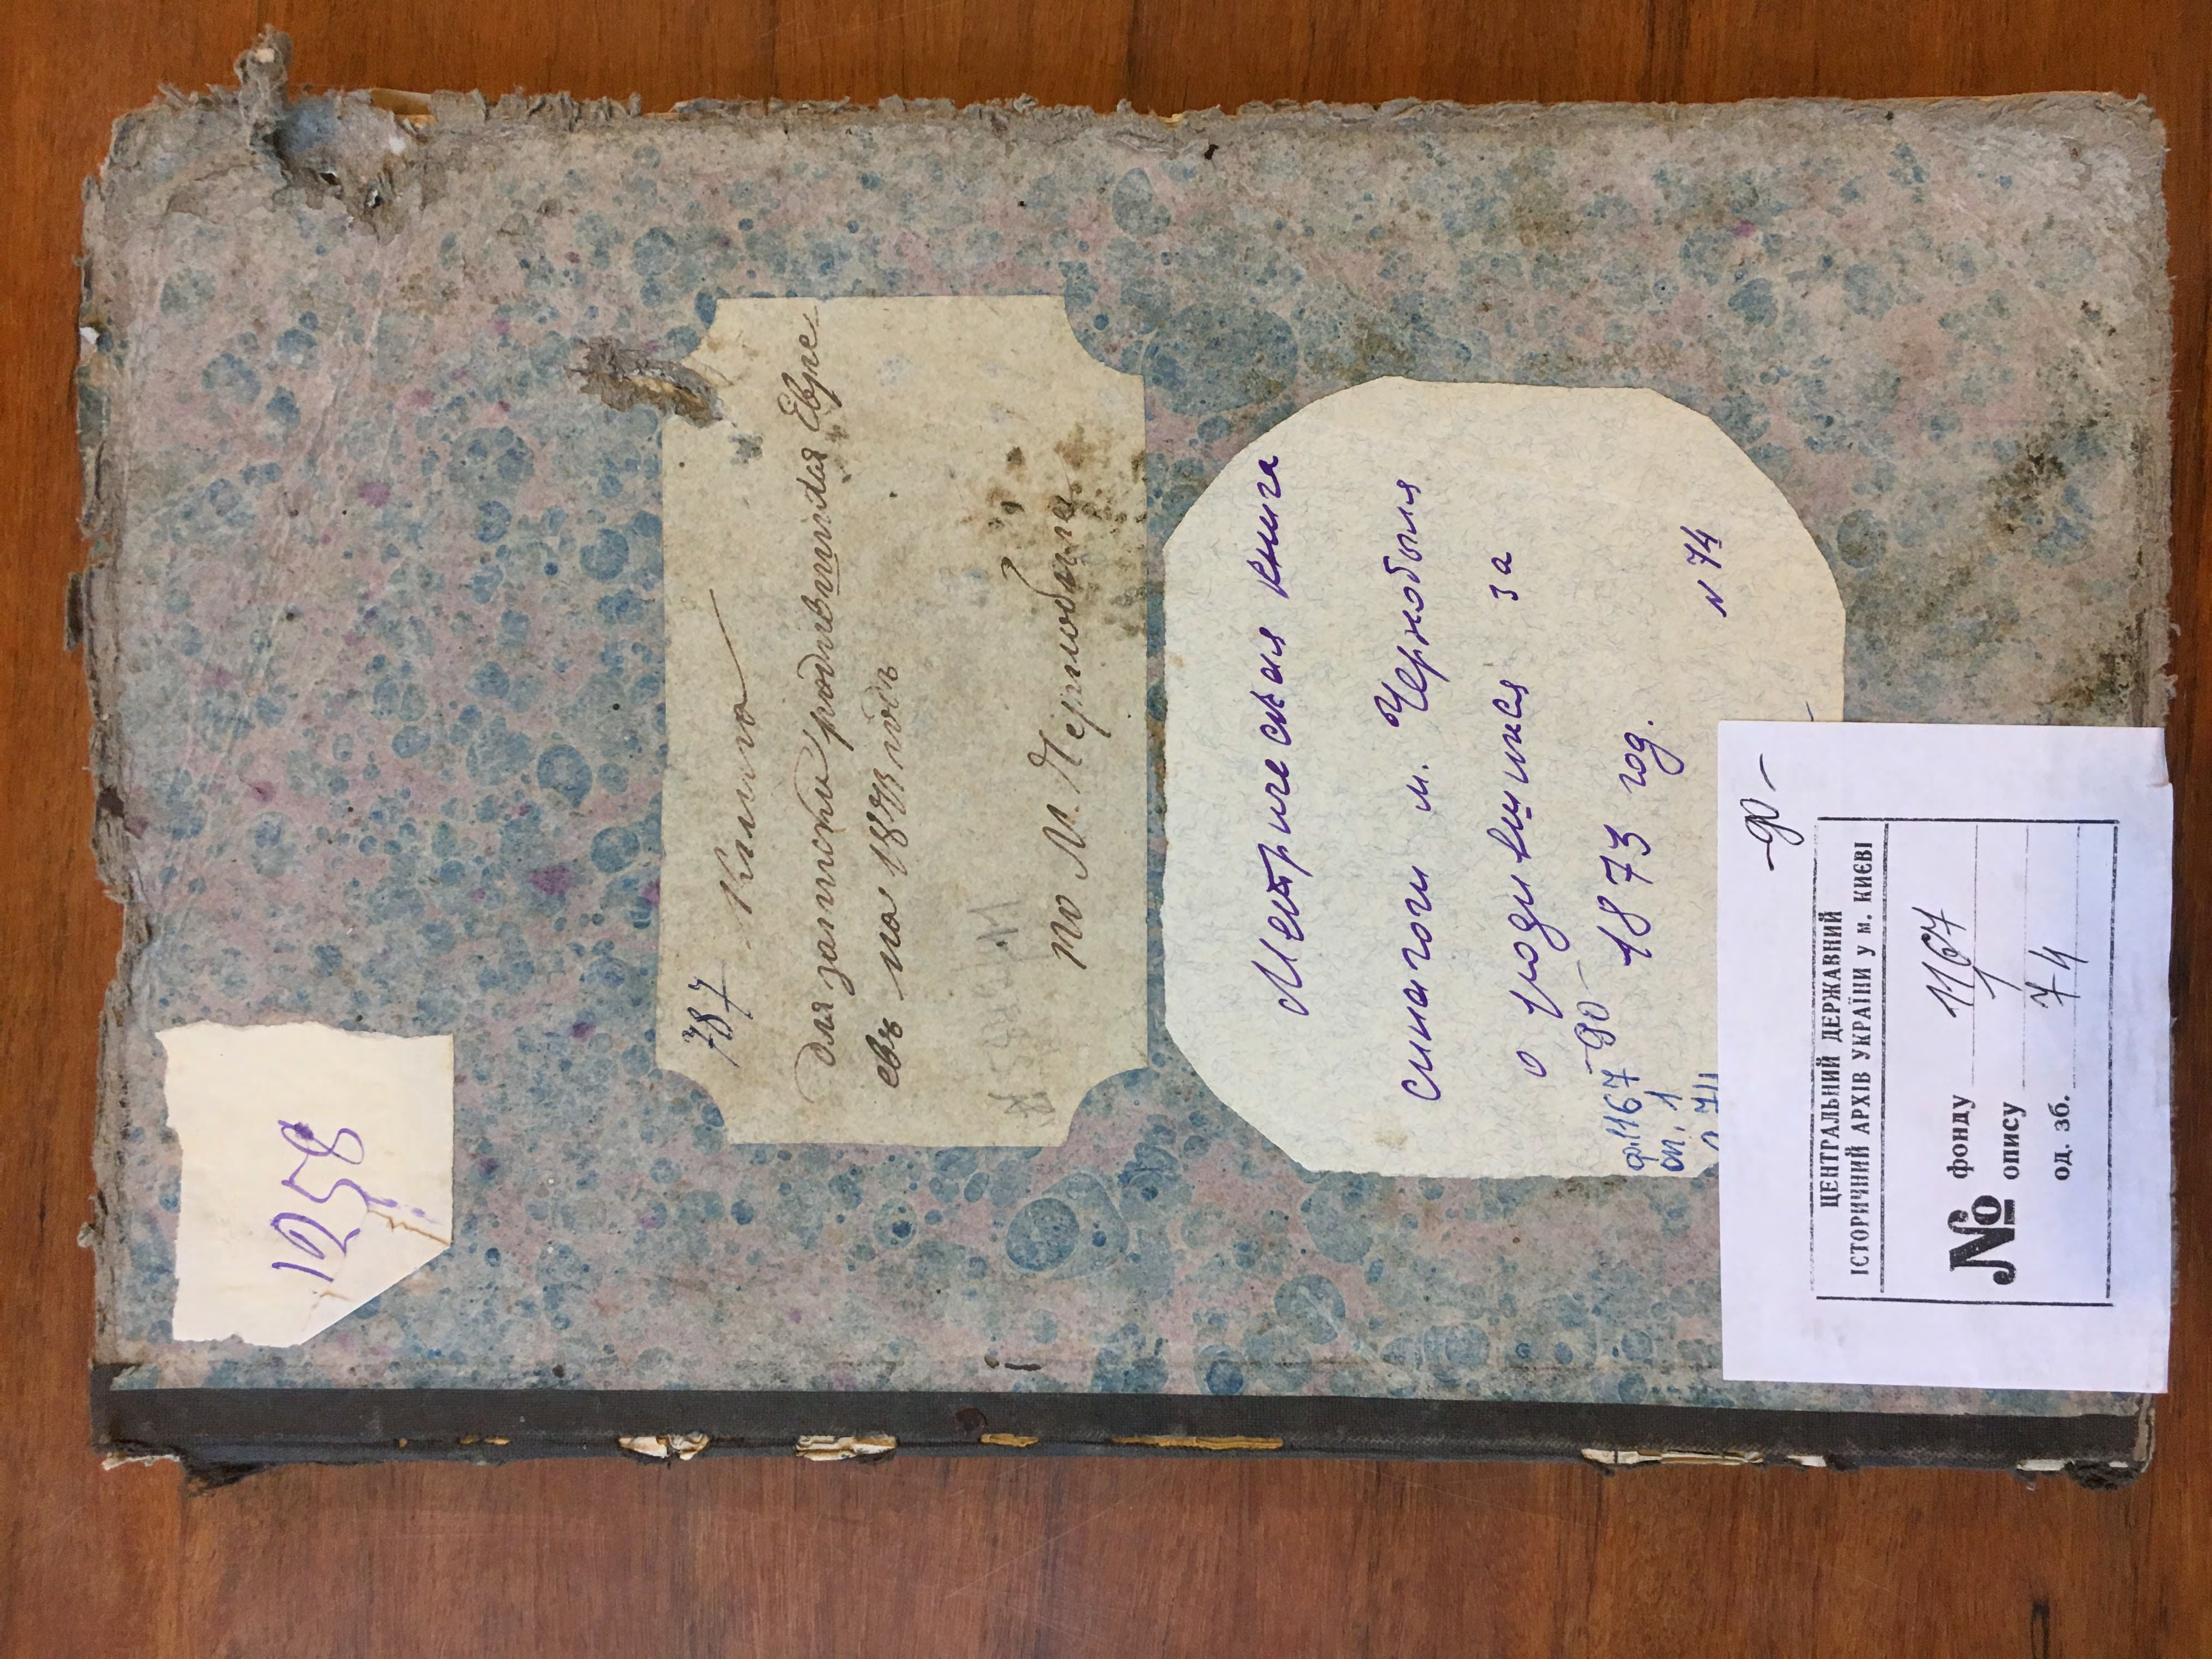 1258
787
Книга
для записки родившихся Евре
евъ на 1873 годъ
по М. Чернобылю
Метрическая книга
синагоги м. Чернобыля
о родившихся за
1873 год.
N 74
ф. 1167 -90-
оп. 1
74
-90-
ЦЕНТРАЛЬНИЙ ДЕРЖАВНИЙ
ІСТОРИЧНИЙ АРХІВ УКРАЇНИ у м. КИЄВІ
№ фонду 1167
опису 1
од. зб. 74